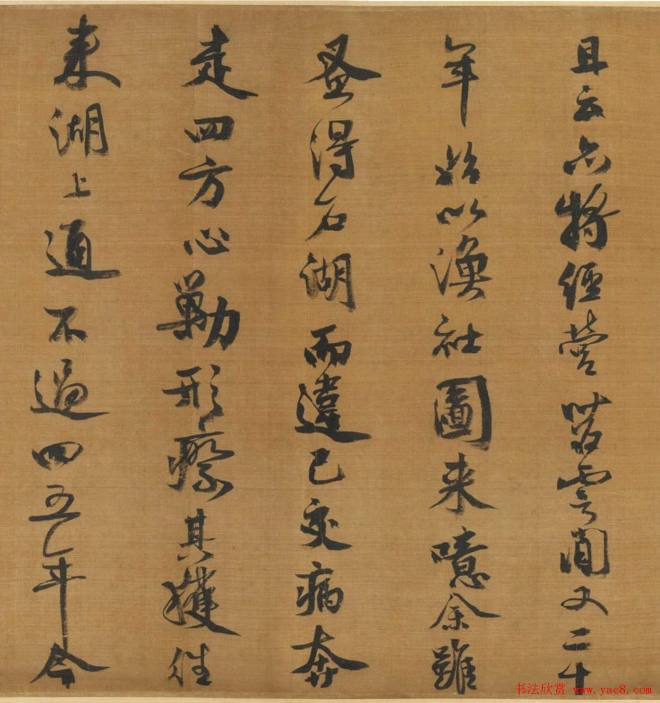 且云亦將經營苕霅間又二十
年始以漁社圖來噫余雖
蚤得石湖而違己交病奔
走四方心勦形瘵其獲往
來湖上通不過四五年今
书法欣赏 www.yac8.com